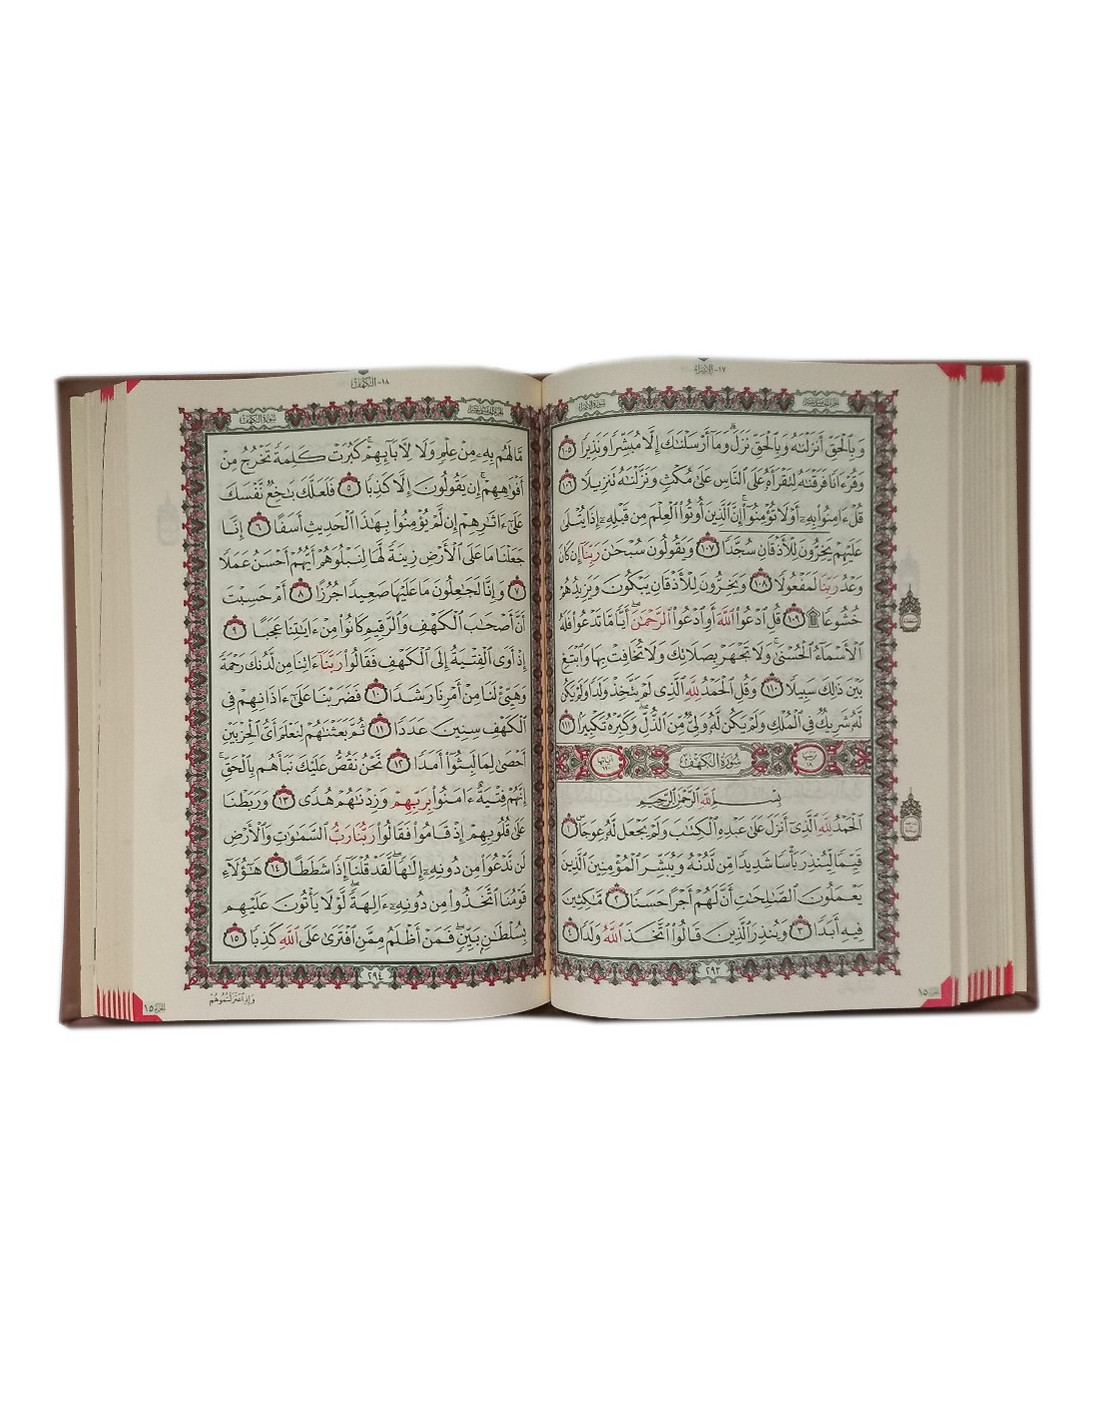 ١٧- الإسراء
سُورَةُ الإِسْرَاءِ
وَبِٱلْحَقِّ أَنزَلْنَٰهُ وَبِٱلْحَقِّ نَزَلَ ۗ وَمَآ أَرْسَلْنَٰكَ إِلَّا مُبَشِّرًا وَنَذِيرًا ١٠٥
وَقُرْءَانًا فَرَقْنَٰهُ لِتَقْرَأَهُۥ عَلَى ٱلنَّاسِ عَلَىٰ مُكْثٍ وَنَزَّلْنَٰهُ تَنزِيلًا ١٠٦
قُلْ ءَامِنُوا۟ بِهِۦٓ أَوْ لَا تُؤْمِنُوٓا۟ ۚ إِنَّ ٱلَّذِينَ أُوتُوا۟ ٱلْعِلْمَ مِن قَبْلِهِۦٓ إِذَا يُتْلَىٰ
عَلَيْهِمْ يَخِرُّونَ لِلْأَذْقَانِ سُجَّدًا ١٠٧ وَيَقُولُونَ سُبْحَٰنَ رَبِّنَآ إِن كَانَ
وَعْدُ رَبِّنَا لَمَفْعُولًا ١٠٨ وَيَخِرُّونَ لِلْأَذْقَانِ يَبْكُونَ وَيَزِيدُهُمْ
خُشُوعًا ۩ ١٠٩ قُلِ ٱدْعُوا۟ ٱللَّهَ أَوِ ٱدْعُوا۟ ٱلرَّحْمَٰنَ ۖ أَيًّا مَّا تَدْعُوا۟ فَلَهُ
ٱلْأَسْمَآءُ ٱلْحُسْنَىٰ ۚ وَلَا تَجْهَرْ بِصَلَاتِكَ وَلَا تُخَافِتْ بِهَا وَٱبْتَغِ
بَيْنَ ذَٰلِكَ سَبِيلًا ١١٠ وَقُلِ ٱلْحَمْدُ لِلَّهِ ٱلَّذِى لَمْ يَتَّخِذْ وَلَدًا وَلَمْ يَكُن
لَّهُۥ شَرِيكٌ فِى ٱلْمُلْكِ وَلَمْ يَكُن لَّهُۥ وَلِىٌّ مِّنَ ٱلذُّلِّ ۖ وَكَبِّرْهُ تَكْبِيرًۢا ١١١
سُورَةُ الكَهْفِ
بِسْمِ ٱللَّهِ ٱلرَّحْمَٰنِ ٱلرَّحِيمِ
ٱلْحَمْدُ لِلَّهِ ٱلَّذِىٓ أَنزَلَ عَلَىٰ عَبْدِهِ ٱلْكِتَٰبَ وَلَمْ يَجْعَل لَّهُۥ عِوَجَا ۜ ١
قَيِّمًا لِّيُنذِرَ بَأْسًا شَدِيدًا مِّن لَّدُنْهُ وَيُبَشِّرَ ٱلْمُؤْمِنِينَ ٱلَّذِينَ
يَعْمَلُونَ ٱلصَّٰلِحَٰتِ أَنَّ لَهُمْ أَجْرًا حَسَنًا ٢ مَّٰكِثِينَ
فِيهِ أَبَدًا ٣ وَيُنذِرَ ٱلَّذِينَ قَالُوا۟ ٱتَّخَذَ ٱللَّهُ وَلَدًا ٤
٢٩٣
الجزء ١٥
١٨- الكهف
سُورَةُ الكَهْفِ
مَّا لَهُم بِهِۦ مِنْ عِلْمٍ وَلَا لِـَٔابَآئِهِمْ ۚ كَبُرَتْ كَلِمَةً تَخْرُجُ مِنْ
أَفْوَٰهِهِمْ ۚ إِن يَقُولُونَ إِلَّا كَذِبًا ٥ فَلَعَلَّكَ بَٰخِعٌ نَّفْسَكَ
عَلَىٰٓ ءَاثَٰرِهِمْ إِن لَّمْ يُؤْمِنُوا۟ بِهَٰذَا ٱلْحَدِيثِ أَسَفًا ٦ إِنَّا
جَعَلْنَا مَا عَلَى ٱلْأَرْضِ زِينَةً لَّهَا لِنَبْلُوَهُمْ أَيُّهُمْ أَحْسَنُ عَمَلًا
٧ وَإِنَّا لَجَٰعِلُونَ مَا عَلَيْهَا صَعِيدًا جُرُزًا ٨ أَمْ حَسِبْتَ
أَنَّ أَصْحَٰبَ ٱلْكَهْفِ وَٱلرَّقِيمِ كَانُوا۟ مِنْ ءَايَٰتِنَا عَجَبًا ٩
إِذْ أَوَى ٱلْفِتْيَةُ إِلَى ٱلْكَهْفِ فَقَالُوا۟ رَبَّنَآ ءَاتِنَا مِن لَّدُنكَ رَحْمَةً
وَهَيِّئْ لَنَا مِنْ أَمْرِنَا رَشَدًا ١٠ فَضَرَبْنَا عَلَىٰٓ ءَاذَانِهِمْ فِى
ٱلْكَهْفِ سِنِينَ عَدَدًا ١١ ثُمَّ بَعَثْنَٰهُمْ لِنَعْلَمَ أَىُّ ٱلْحِزْبَيْنِ
أَحْصَىٰ لِمَا لَبِثُوٓا۟ أَمَدًا ١٢ نَّحْنُ نَقُصُّ عَلَيْكَ نَبَأَهُم بِٱلْحَقِّ ۚ
إِنَّهُمْ فِتْيَةٌ ءَامَنُوا۟ بِرَبِّهِمْ وَزِدْنَٰهُمْ هُدًى ١٣ وَرَبَطْنَا
عَلَىٰ قُلُوبِهِمْ إِذْ قَامُوا۟ فَقَالُوا۟ رَبُّنَا رَبُّ ٱلسَّمَٰوَٰتِ وَٱلْأَرْضِ
لَن نَّدْعُوَا۟ مِن دُونِهِۦٓ إِلَٰهًا ۖ لَّقَدْ قُلْنَآ إِذًا شَطَطًا ١٤ هَٰٓؤُلَآءِ
قَوْمُنَا ٱتَّخَذُوا۟ مِن دُونِهِۦٓ ءَالِهَةً ۖ لَّوْلَا يَأْتُونَ عَلَيْهِم
بِسُلْطَٰنٍۭ بَيِّنٍ ۖ فَمَنْ أَظْلَمُ مِمَّنِ ٱفْتَرَىٰ عَلَى ٱللَّهِ كَذِبًا ١٥
٢٩٤
وَإِذِ ٱعْتَزَلْتُمُوهُمْ
الجزء ١٥